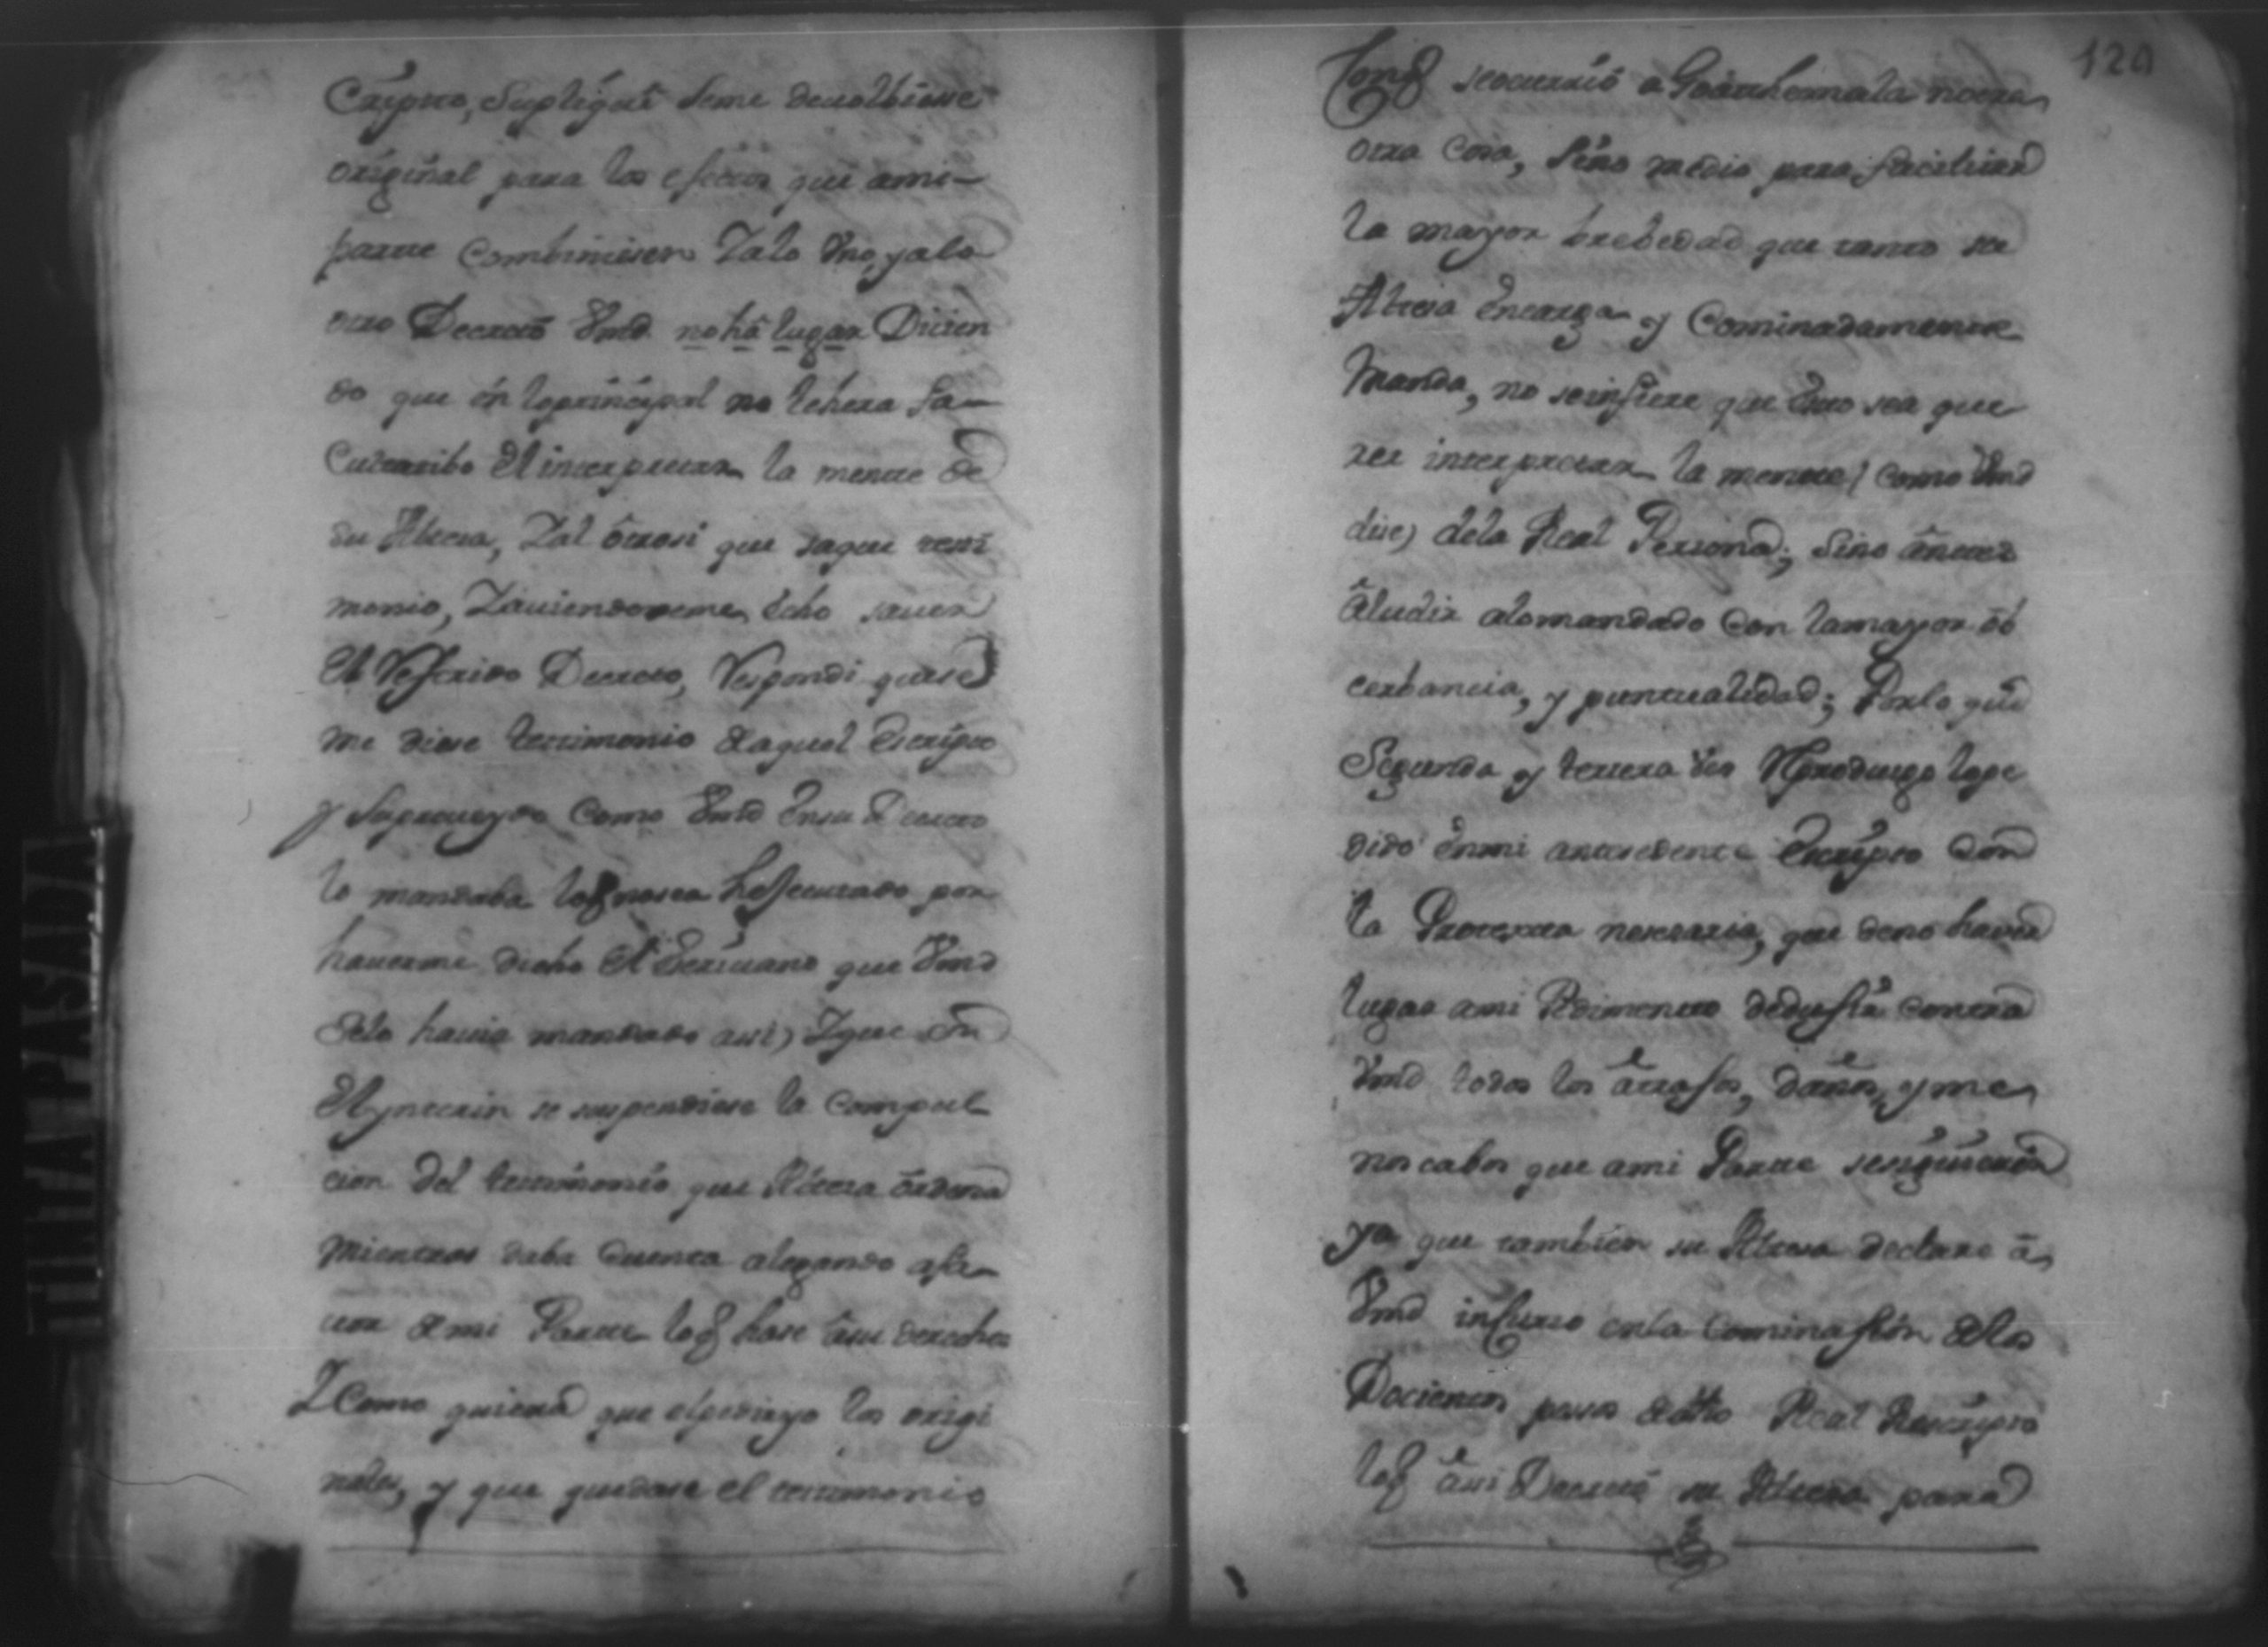 Cripto, Supliqué Seme devolbiesse
original para los efectos que ami-
parte combiniesen Yalo Vno, yalo
otro Decretó Vmd. no há lugar Dicien
do que én loprincipal no lehera fa-
Cultatibo El interpretar la mente de
su Alteza, Yal ótrosi que saque testi
monio, Yauiendoseme, Echo sauer
El Referido Decreto, Respondi quese
me diese testimonio de aquel Escripto
y Suproueydo Como Vmd Ensu Decreto
lo mandaba loq nosea hefecutado por
hauerme dicho El Escriuano que Vmd
selo hauia mandado assi) Yque En
El ynterin se suspendiese la Compul
cion del testimonio que Alteza órdena
Mientras daba Cuenta alegando afa-
uor de mi Parte loq hase ásu derecho
Y Como quiera que elpediryo los origi
nales, y que quedase el testimonio
120
Conq seocurrió a Goathemala noera
otra Cosa, Sino medio para facilitar
la mayor brebedad que tanto su
Alteza Encarga y Cominadamente
Manda, no seinfiere que Esto sea que
rer interpretar la mente (como Vmd
dise) dela Real Persona; Sino ántes
áludir alomandado Con lamayor ób
cerbancia, y puntualidad; Porlo que
Segunda y tersera ves Reprodusgo lope
dido Enmi antesedente Escripto Con
la Protexta nesesaria, que deno haver
lugar ami Pedimento dedusirá contra
Vmd todos los átrasos, daños, y me
noscabos que ami Parte sesiguieren
ya que tambien su Alteza declare á
Vmd incurso enla Cominasión delos
Docientos pesos de dtto Real Rescripto
loq ási Decretó su Alteza para